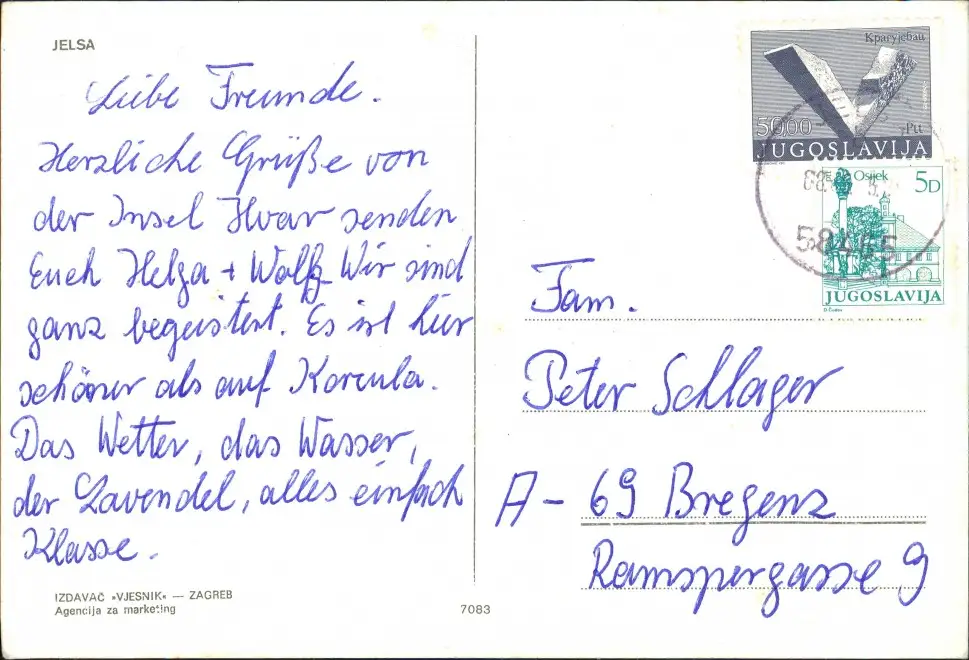 JELSA
Liebe Freunde.
Herzliche Grüße von
der Insel Hvar senden
Euch Helga + Wolfg. Wir sind
ganz begeistert. Es ist hier
schöner als auf Korcula.
Das Wetter, das Wasser,
der Lavendel, alles einfach
Klasse.
IZDAVAČ »VJESNIK« — ZAGREB
Agencija za marketing
7083
50,00
JUGOSLAVIJA
Osijek
5D
JUGOSLAVIJA
Fam.
Peter Schlager
A - 69 Bregenz
Ramspergasse 9